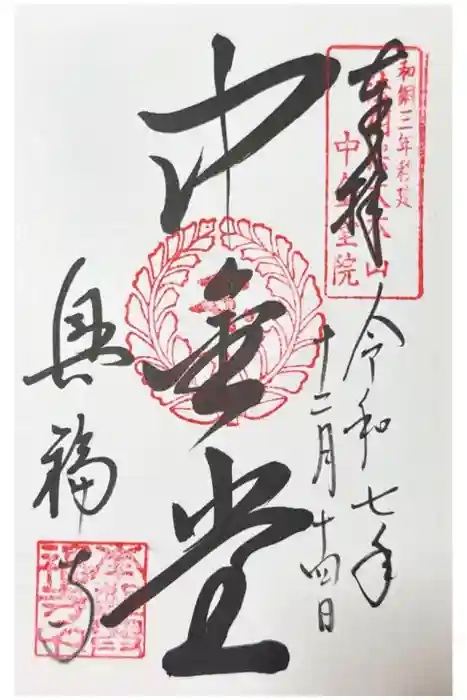 奉拝
和銅三年創建
中金堂院
令和七年
十二月十四日
中金堂
興福寺